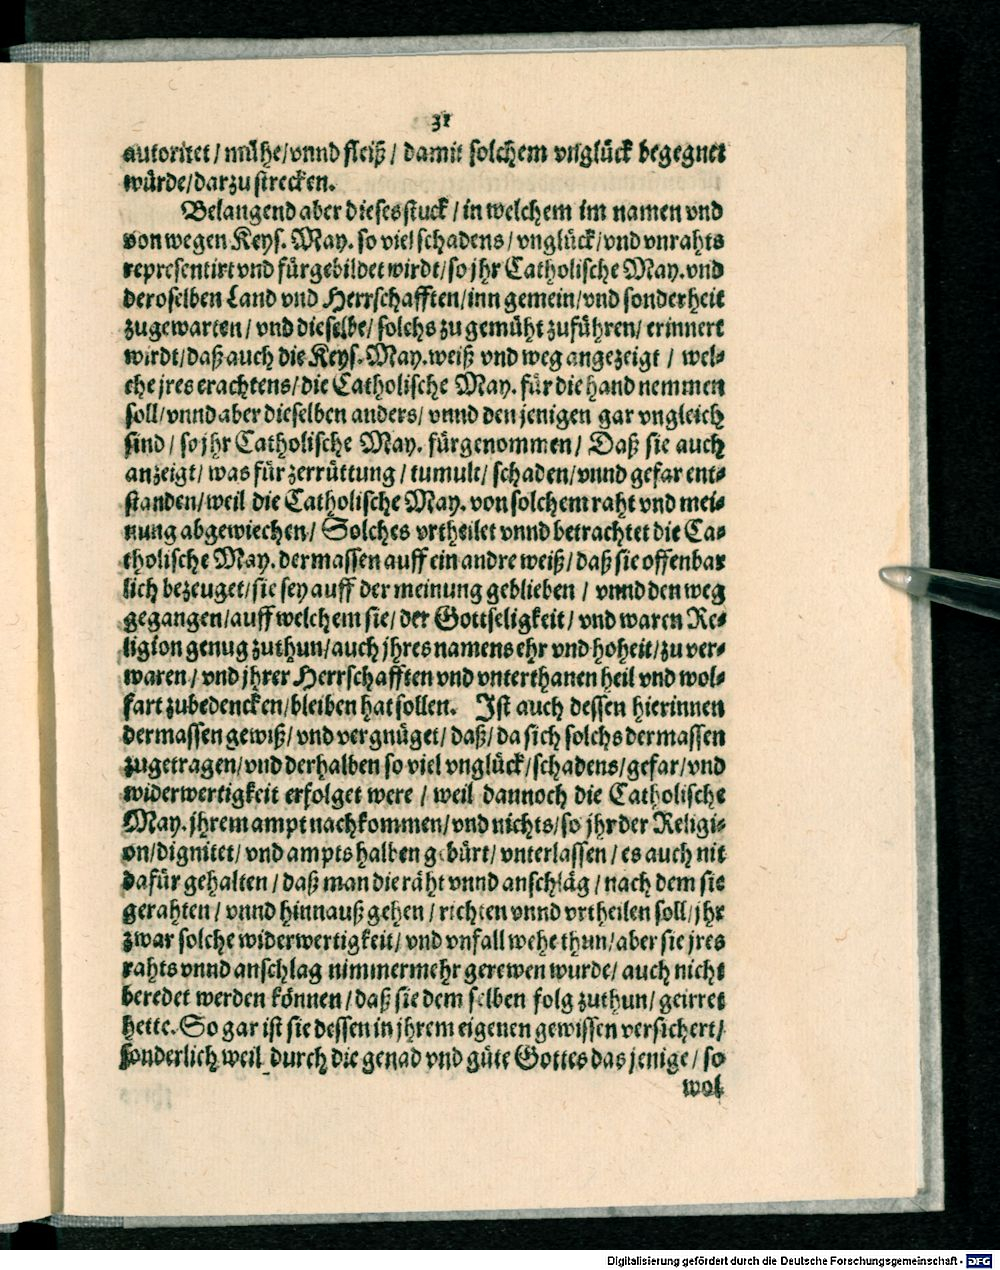 31
autoritet / mühe/vnnd fleiß / damit solchem vnglück begegnet
würde/darzu strecken.
Belangend aber dieses stuck / in welchem im namen vnd
von wegen Keys. May. so viel schadens / vnglück/vnd vnrahts
representirt vnd fürgebildet wirdt/so jhr Catholische May. vnd
deroselben Land vnd Herrschafften/inn gemein/vnd sonderheit
zugewarten / vnd dieselbe/ solchs zu gemüht zuführen/ erinnert
wirdt/daß auch die Keys. May. weiß vnd weg angezeigt / wel-
che jres erachtens/die Catholische May. für die hand nemmen
soll/vnnd aber dieselben anders/ vnnd den jenigen gar vngleich
sind / so jhr Catholische May. fürgenommen/ Daß sie auch
anzeigt/ was für zerrüttung / tumult/ schaden/vnnd gefar ent-
standen/weil die Catholische May. von solchem raht vnd mei-
nung abgewiechen/ Solches vrtheilet vnnd betrachtet die Ca-
tholische May. dermassen auff ein andre weiß/ daß sie offenbar
lich bezeuget/sie sey auff der meinung geblieben / vnnd den weg
gegangen/auff welchem sie/ der Gottseligkeit/ vnd waren Re-
ligion genug zuthun/auch jhres namens ehr vnd hoheit/zu ver-
waren / vnd jhrer Herrschafften vnd vnterthanen heil vnd wol-
fart zubedencken/bleiben hat sollen. Ist auch dessen hierinnen
dermassen gewiß/ vnd vergnüget/ daß/ da sich solchs dermassen
zugetragen/vnd derhalben so viel vnglück/schadens/gefar/vnd
widerwertigkeit erfolget were / weil dannoch die Catholische
May. jhrem ampt nachkommen/vnd nichts/so jhr der Religi-
on/dignitet/ vnd ampts halben gebürt/ vnterlassen / es auch nit
dafür gehalten / daß man die räht vnnd anschläg / nach dem sie
gerahten / vnnd hinnauß gehen / richten vnnd vrtheilen soll/jhr
zwar solche widerwertigkeit/ vnd vnfall wehe thun/aber sie jres
rahts vnnd anschlag nimmermehr gerewen wurde/ auch nicht
beredet werden können/daß sie dem selben folg zuthun/ geirret
hette. So gar ist sie dessen in jhrem eigenen gewissen versichert/
sonderlich weil durch die genad vnd güte Gottes das jenige/ so
wol
Digitalisierung gefördert durch die Deutsche Forschungsgemeinschaft - DFG